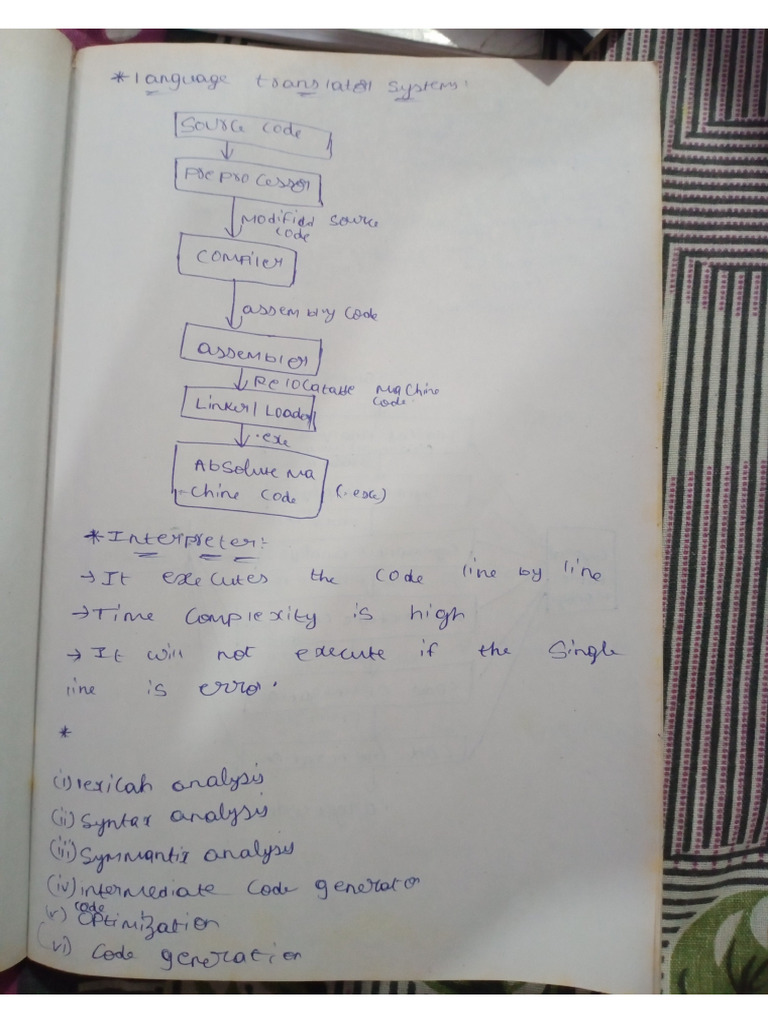 * Language translator systems:
source code
preprocessor
modified source
code
compiler
assembly code
assembler
Relocatable machine
code.
Linker/Loader
.exe
Absolute ma
chine code (.exe)
* Interpreter:
→ It executes the code line by line
→ Time complexity is high
→ It will not execute if the single
line is error.
*
(i) lexicah analysis
(ii) Syntax analysis
(iii) Symmantix analysis
(iv) intermediate code generator
code
(v) optimization
(vi) code generation